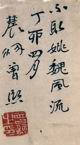 小取姚魏風流
丁卯四月
農髯曾熙